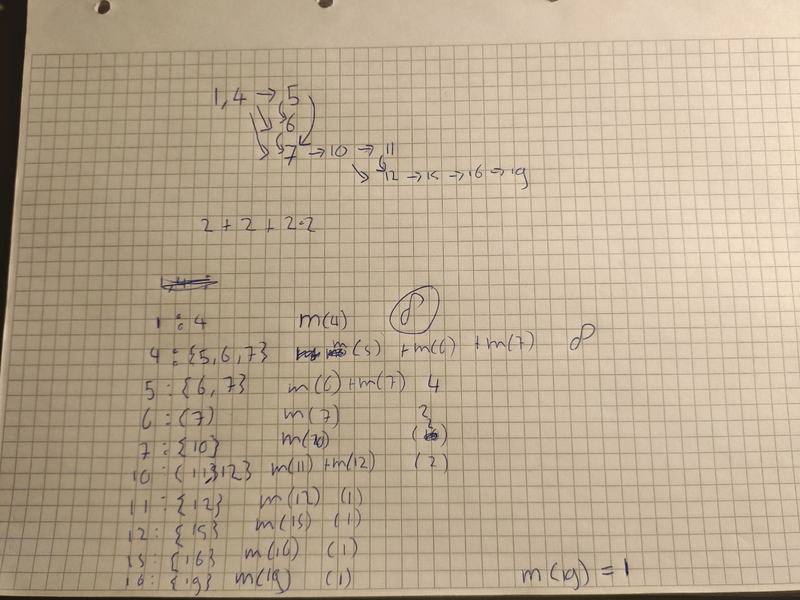 1,4 → 5
6
7 → 10 → 11
12 → 15 → 16 → 19
2 + 2 + 2·2
1 : 4 m(4) 8
4 : {5,6,7} m(5) + m(6) + m(7) 8
5 : {6,7} m(6) + m(7) 4
6 : {7} m(7) 2
7 : {10} m(10) (2)
10 : {11,12} m(11) + m(12) (2)
11 : {12} m(12) (1)
12 : {15} m(15) (1)
15 : {16} m(16) (1)
16 : {19} m(19) (1) m(19) = 1